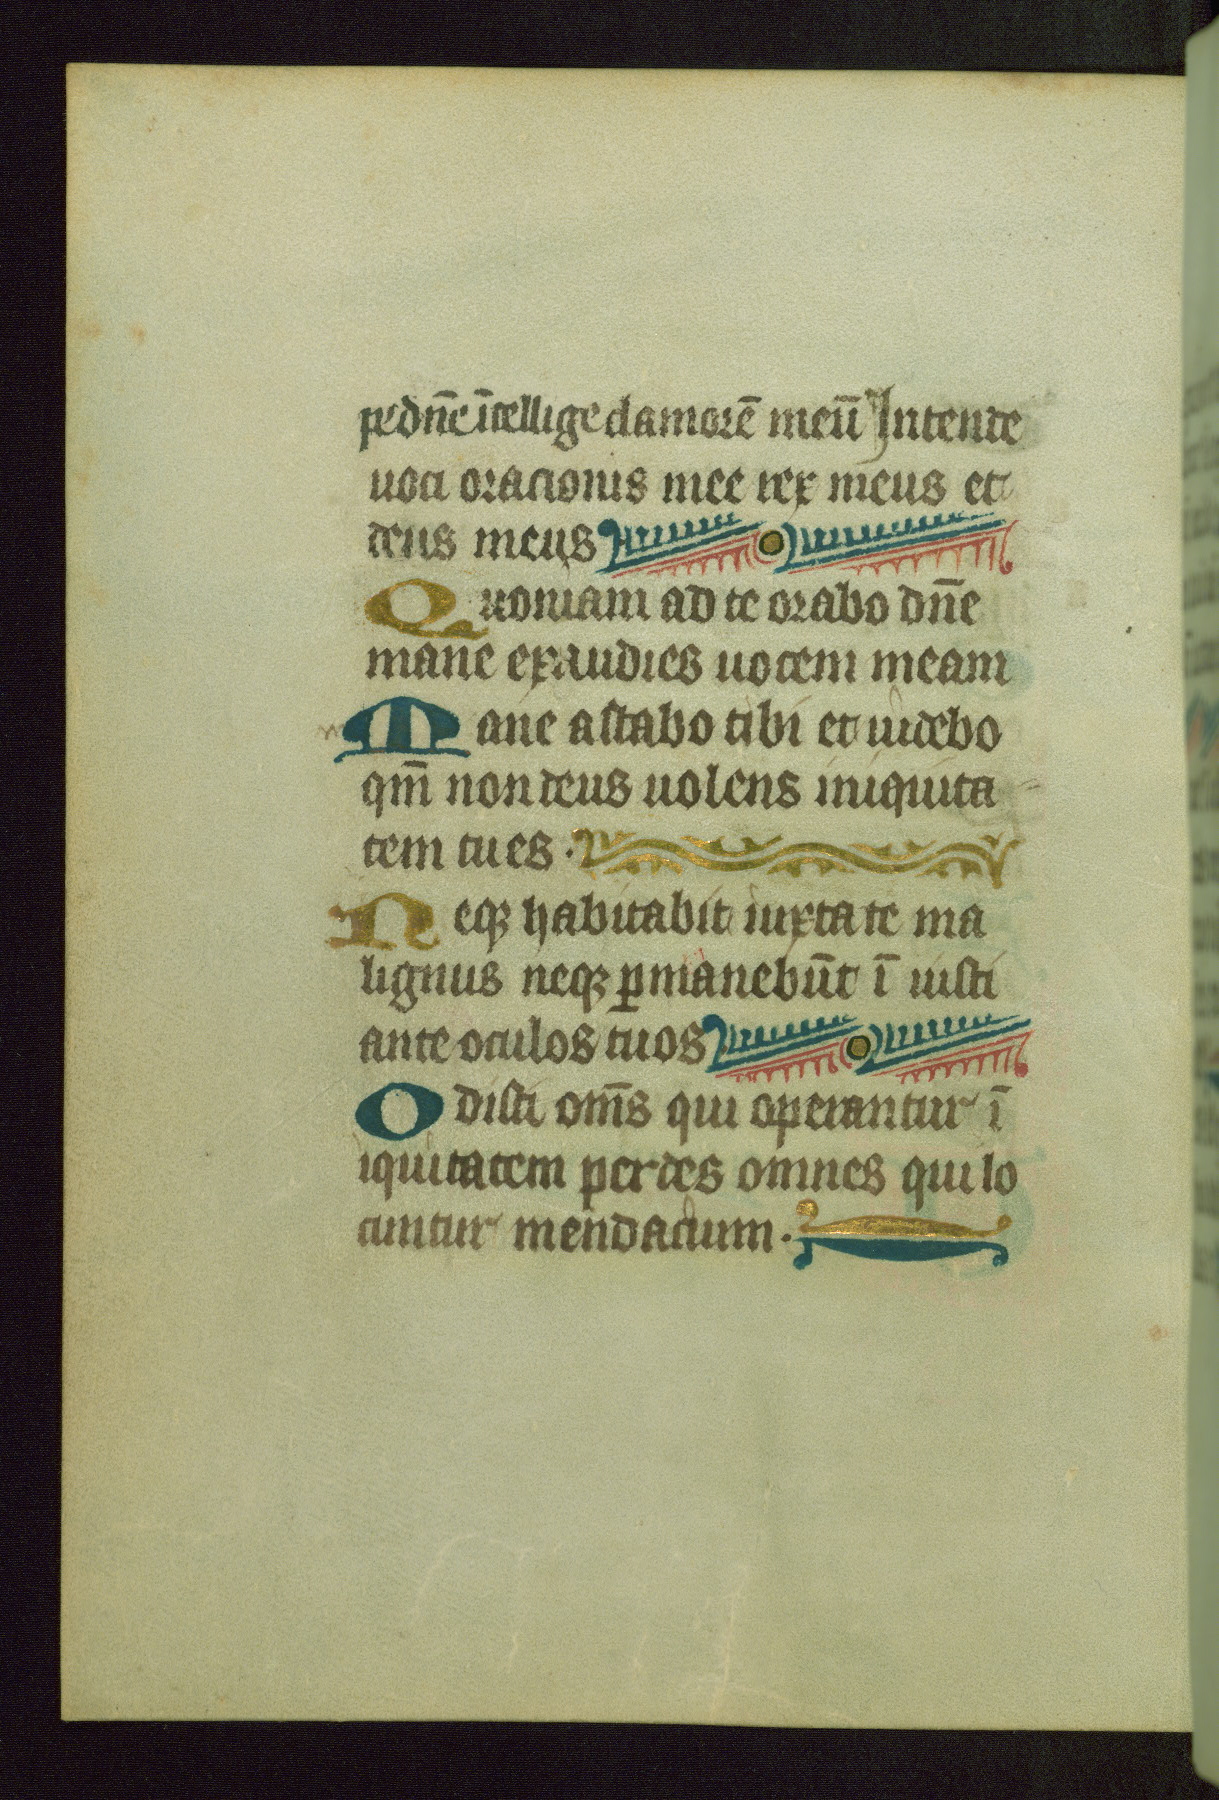 pe dn̄e ītellige clamorē meū Intende
uoci oracionis mee rex meus et
deus meus
Quoniam ad te orabo dn̄e
mane exaudies uocem meam
Mane astabo tibi et uidebo
qm̄ non deus uolens iniquita
tem tu es .
Neqꝫ habitabit iuxta te ma
lignus neqꝫ ꝑmanebūt ī iusti
ante oculos tuos
Odisti om̄s qui operantur ī
iquitatem perdes omnes qui lo
cuntur mendacium .